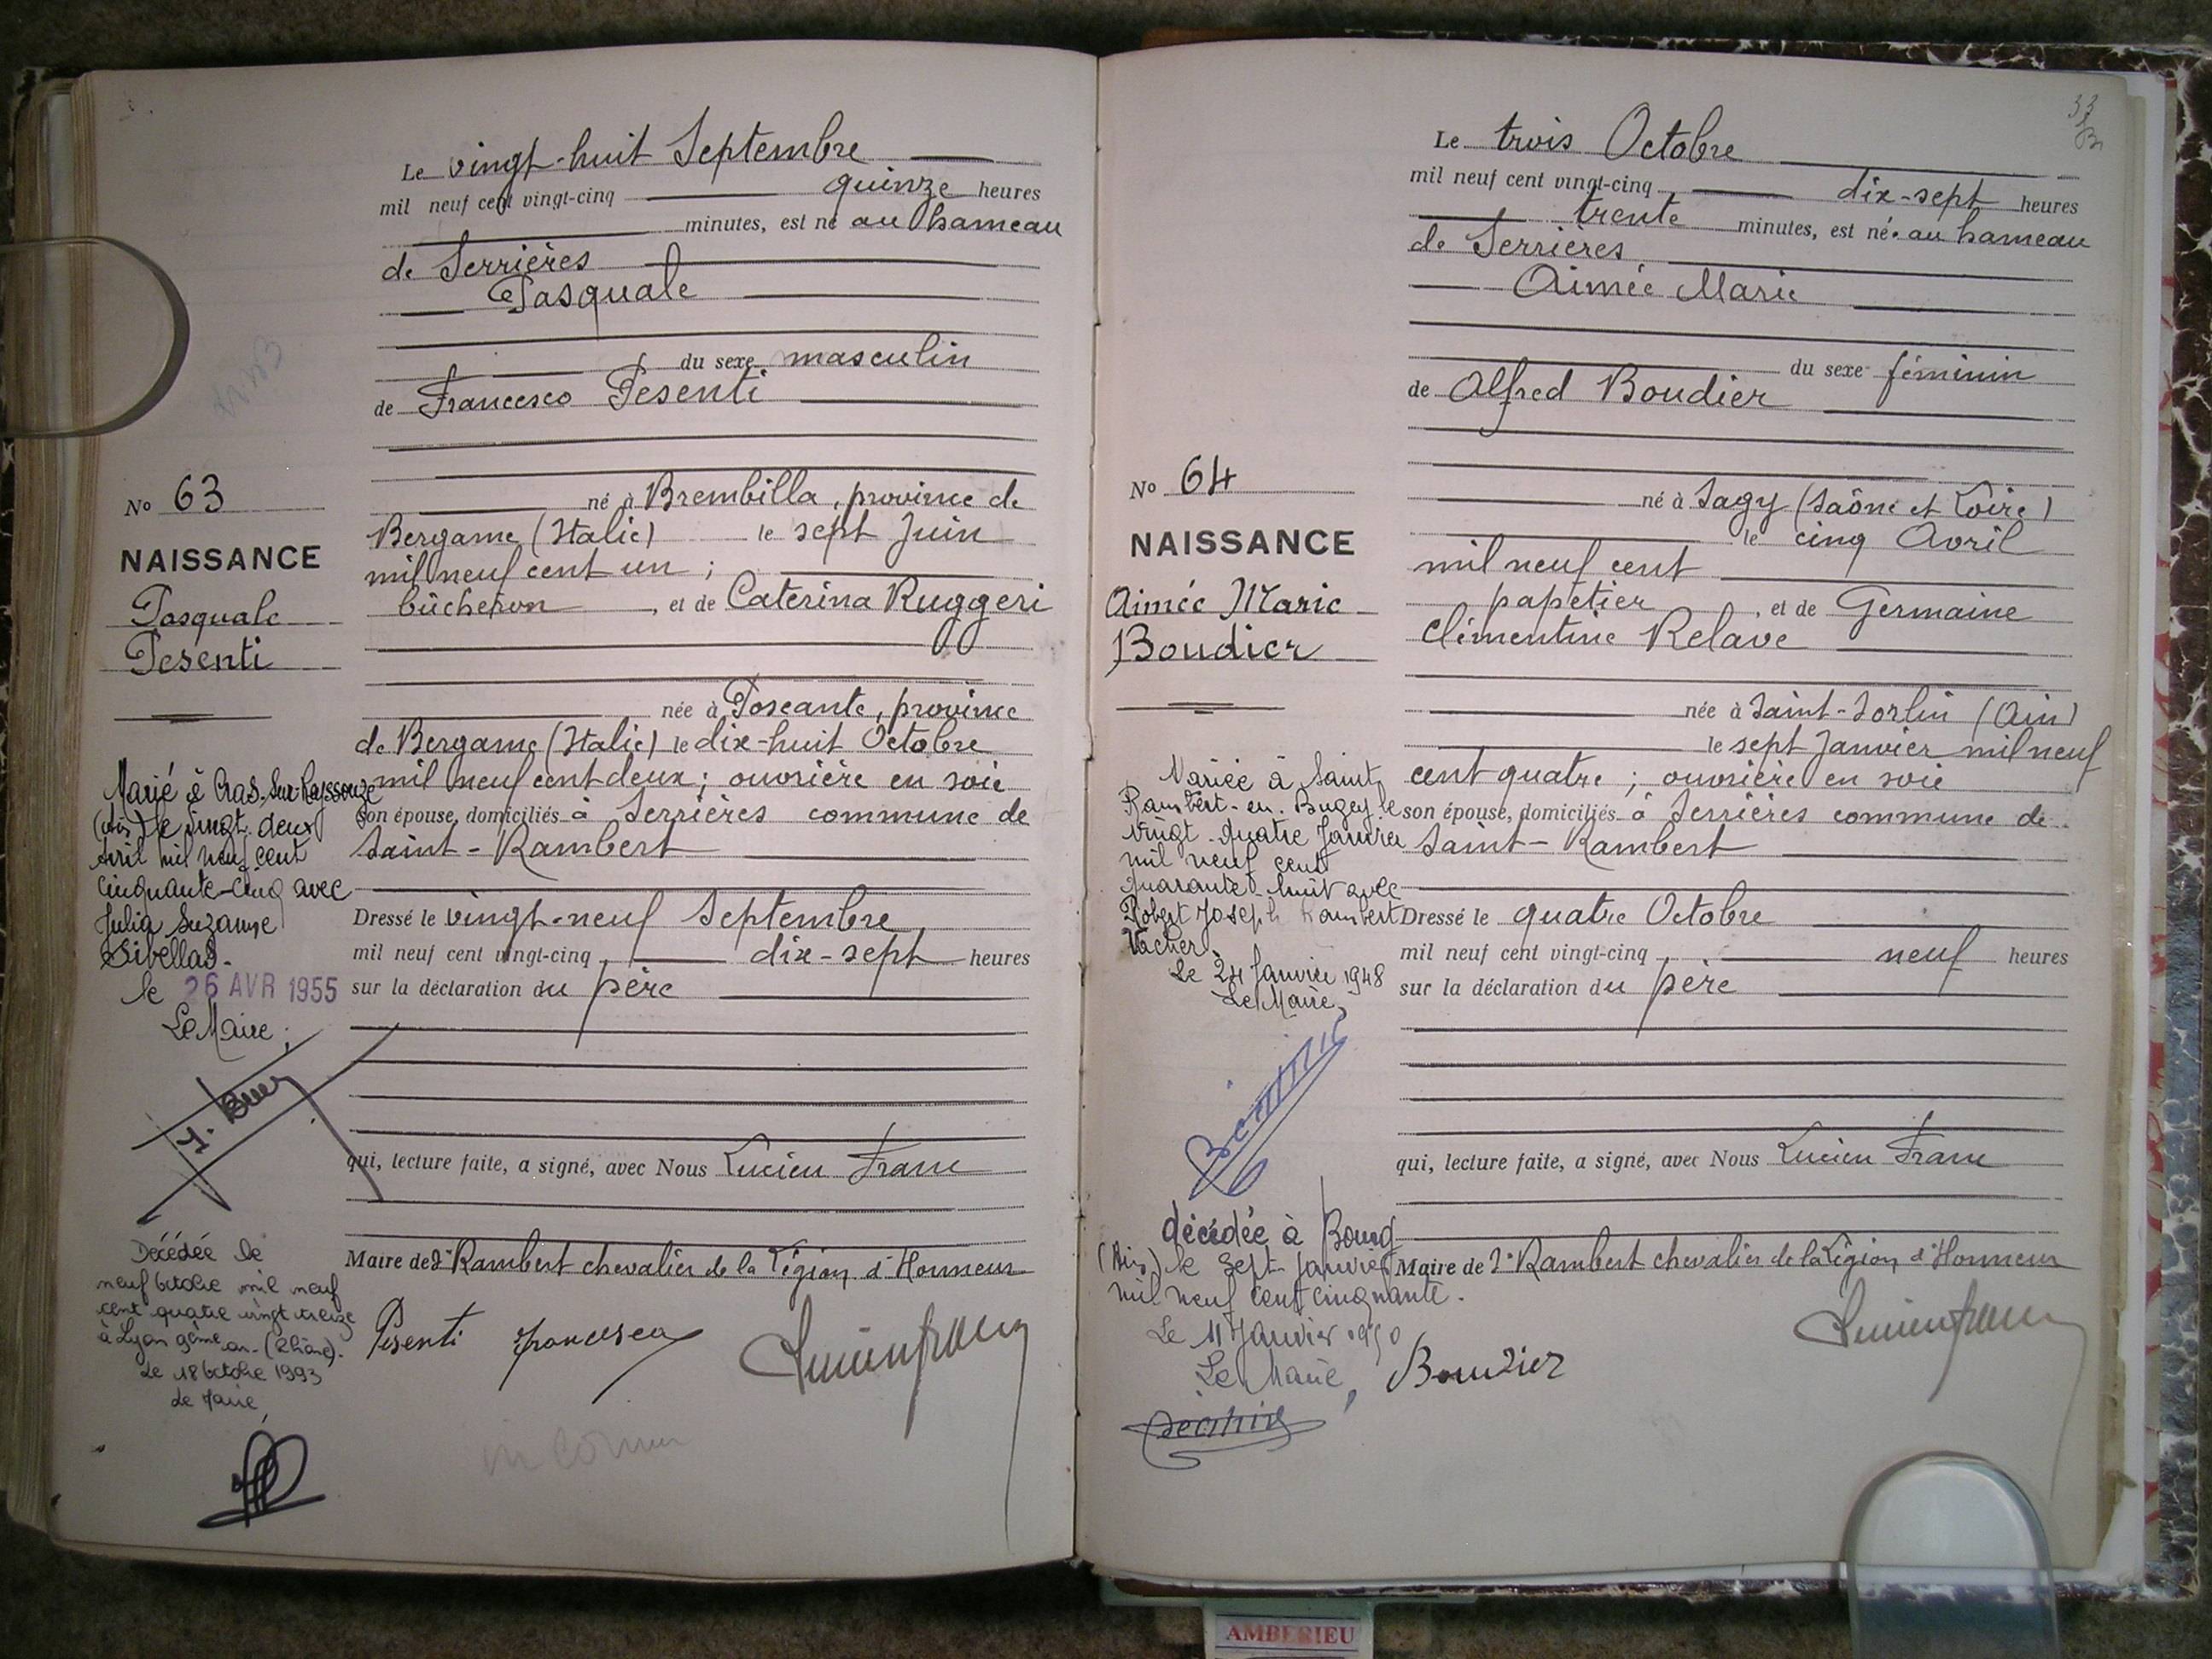 Le vingt-huit Septembre
mil neuf cent vingt-cinq quinze heures
minutes, est né au hameau
de Serrières
Pasquale
du sexe masculin
de Francesco Pesenti
No 63
NAISSANCE
Pasquale
Pesenti
né à Brembilla, province de
Bergame (Italie) le sept Juin
mil neuf cent un ;
bûcheron, et de Caterina Ruggeri
née à Poscante, province
de Bergame (Italie) le dix-huit Octobre
mil neuf cent deux ; ouvrière en soie
son épouse, domiciliés à Serrières commune de
Saint-Rambert
Dressé le vingt-neuf Septembre
mil neuf cent vingt-cinq, dix-sept heures
sur la déclaration du père
qui, lecture faite, a signé, avec Nous Lucien Franc
Maire de St Rambert chevalier de la Légion d'Honneur
Pesenti Francesco
Marié à Cras-Sur-Reyssouze
(Ain) le vingt-deux
Avril mil neuf cent
cinquante-cinq avec
Julia Suzanne
le 26 AVR 1955
Le Maire ;
Décédée le
neuf octobre mil neuf
cent quatre vingt treize
à Lyon 9ème arr. (Rhône).
Le 18 octobre 1993
Le Maire,
33
Le trois Octobre
mil neuf cent vingt-cinq, dix-sept heures
trente minutes, est née au hameau
de Serrières
Aimée Marie
du sexe féminin
de Alfred Boudier
No 64
NAISSANCE
Aimée Marie
Boudier
né à Sagy (Saône et Loire)
le cinq Avril
mil neuf cent
papetier, et de Germaine
Clémentine Relave
née à Saint-Sorlin (Ain)
le sept Janvier mil neuf
cent quatre ; ouvrière en soie
son épouse, domiciliés à Serrières commune de
Saint-Rambert
Dressé le quatre Octobre
mil neuf cent vingt-cinq, neuf heures
sur la déclaration du père
qui, lecture faite, a signé, avec Nous Lucien Franc
Maire de St Rambert chevalier de la Légion d'Honneur
Boudier
Mariée à Saint
Rambert-en-Bugey le
vingt-quatre Janvier
mil neuf cent
quarante-huit avec
Robert Joseph Rambert
Vacher
Le 24 Janvier 1948
Le Maire,
décédée à Bourg
(Ain) le sept Janvier
mil neuf cent cinquante.
Le 11 Janvier 1950
Le Maire,
AMBERIEU